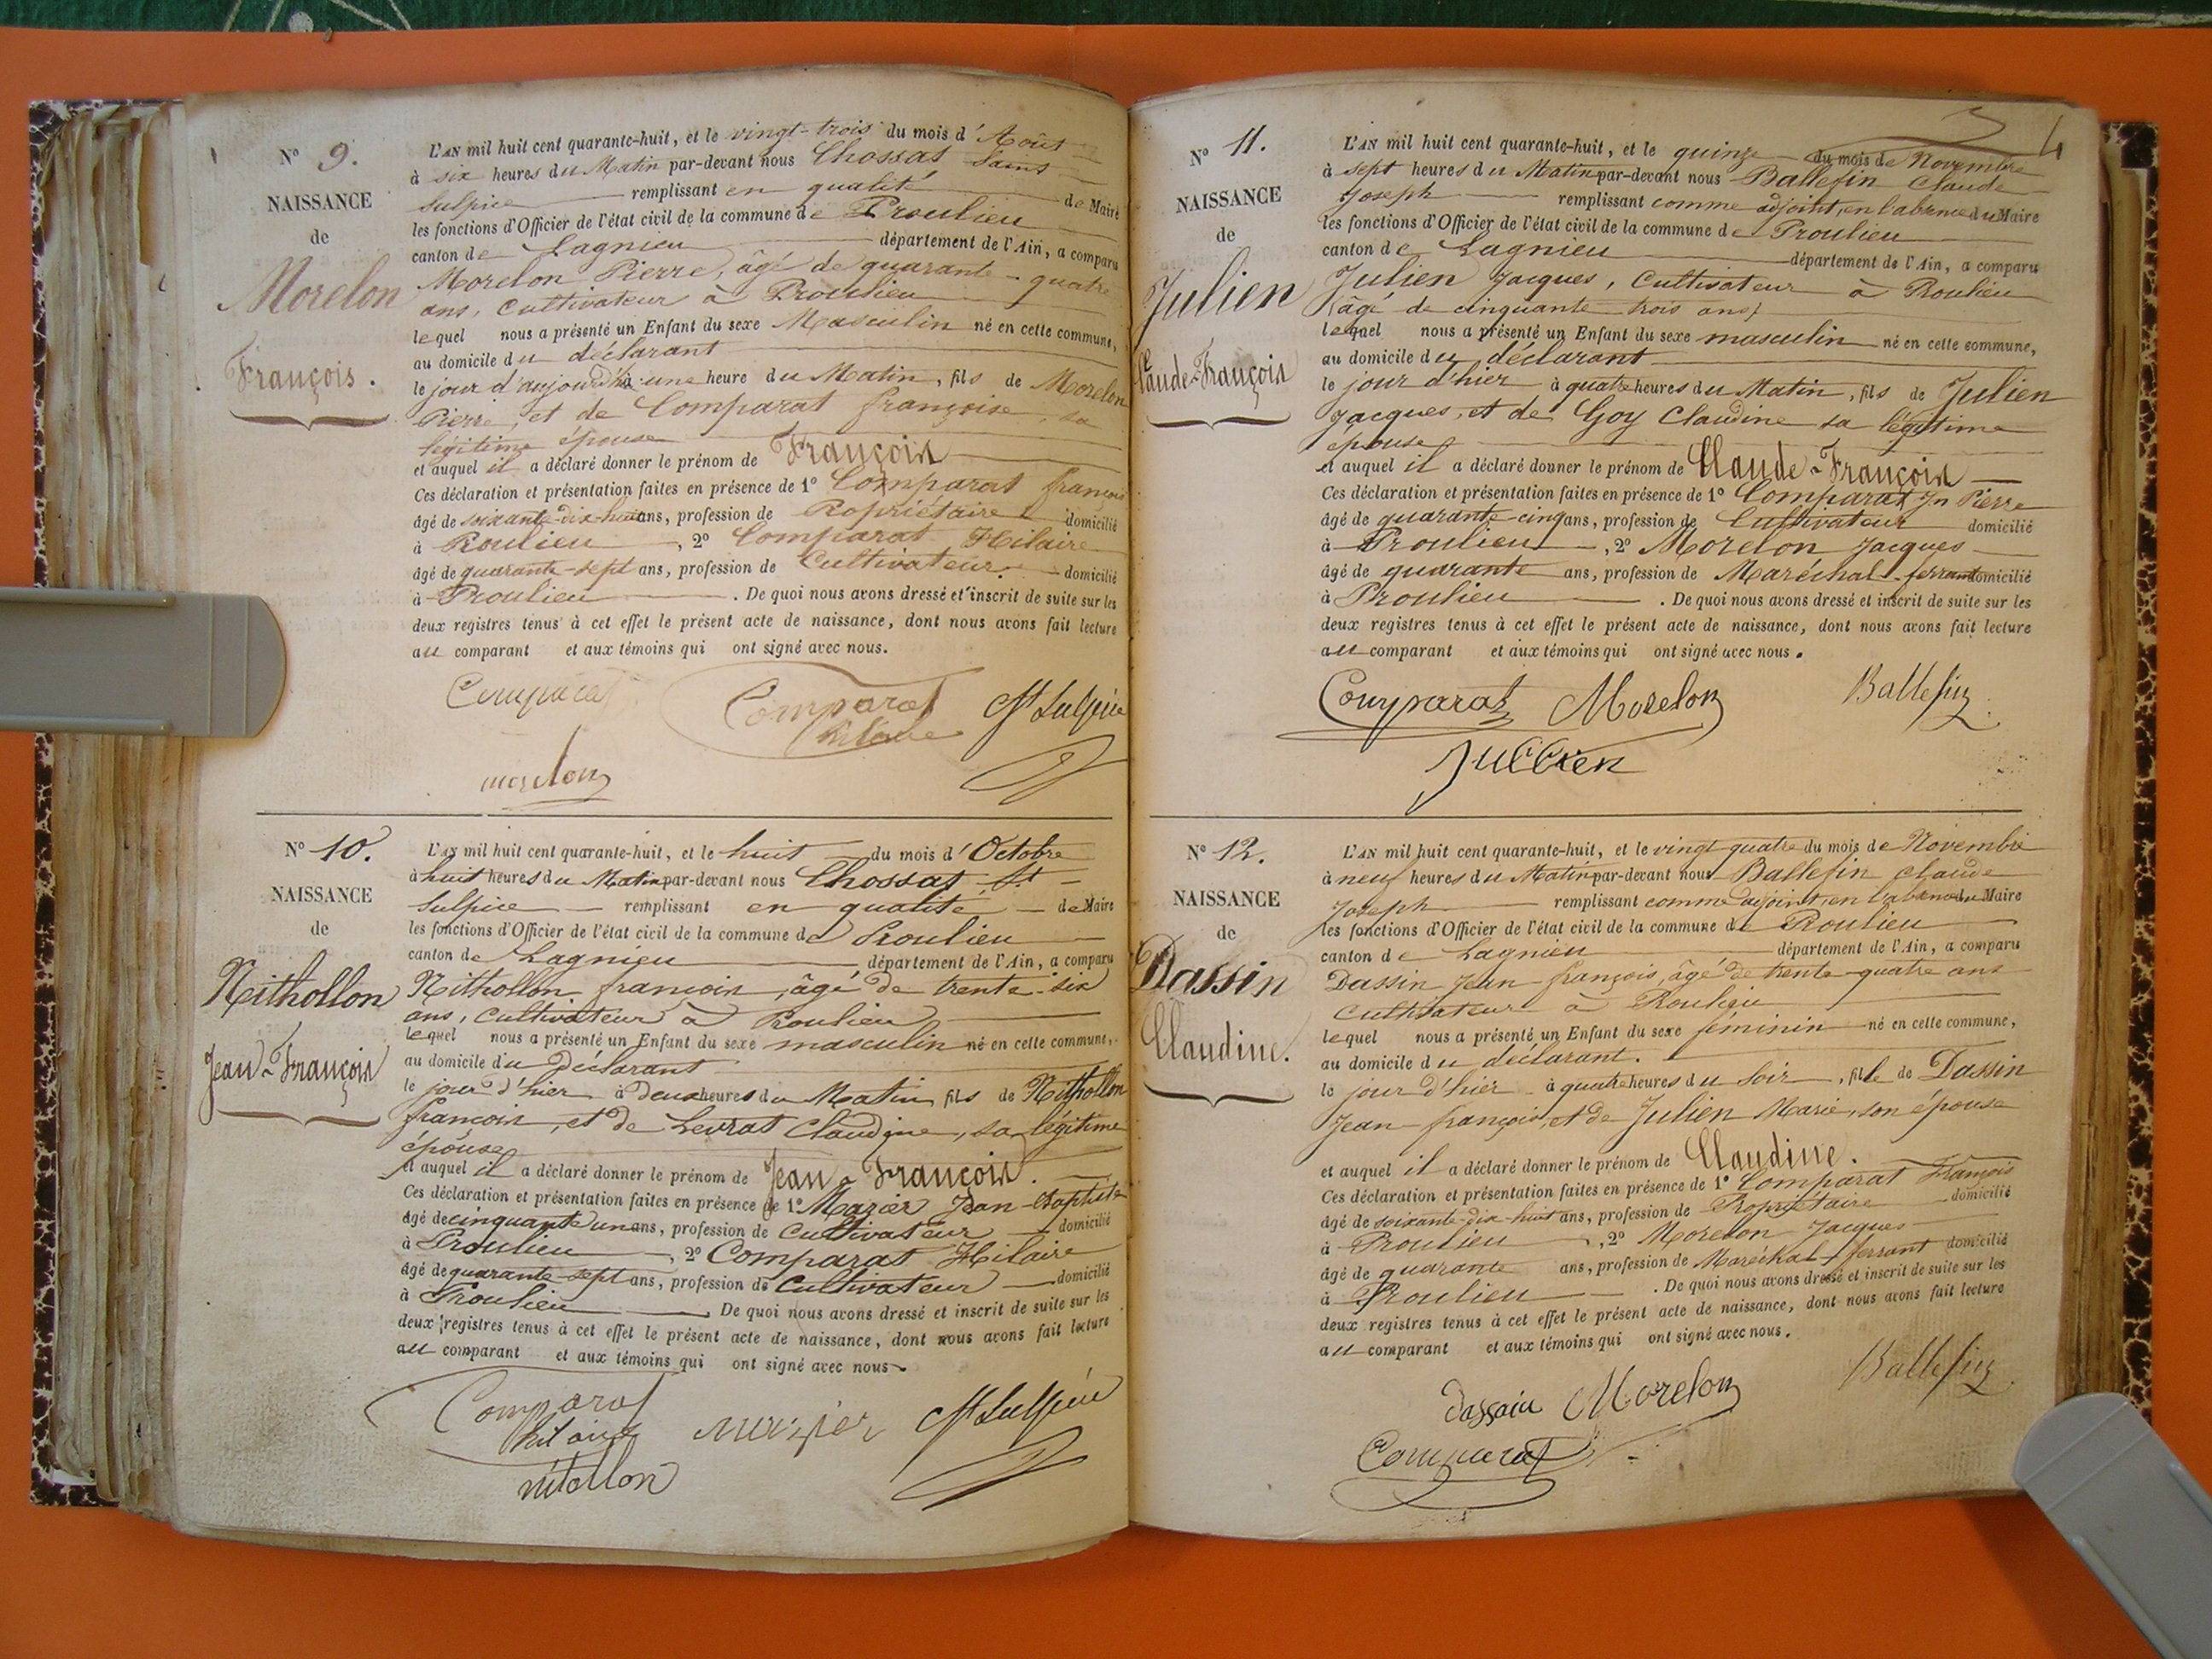 N° 9.
NAISSANCE
de
Morelon
François.
L'AN mil huit cent quarante-huit, et le vingt-trois du mois d'Août
à six heures du Matin par-devant nous Chossat Saint
Sulpice remplissant en qualité de Maire
les fonctions d'Officier de l'état civil de la commune de Proulieu
canton de Lagnieu département de l'Ain, a comparu
Morelon Pierre, âgé de quarante-quatre
ans, cultivateur à Proulieu
lequel nous a présenté un Enfant du sexe Masculin né en cette commune,
au domicile du déclarant
le jour d'aujourd'hui à une heure du Matin, fils de Morelon
Pierre, et de Comparat françoise, sa
légitime épouse
et auquel il a déclaré donner le prénom de François
Ces déclaration et présentation faites en présence de 1° Comparat françois
âgé de soixante-dix-huit ans, profession de Propriétaire domicilié
à Proulieu, 2° Comparat Hilaire
âgé de quarante-sept ans, profession de Cultivateur domicilié
à Proulieu. De quoi nous avons dressé et inscrit de suite sur les
deux registres tenus à cet effet le présent acte de naissance, dont nous avons fait lecture
au comparant et aux témoins qui ont signé avec nous.
Comparat Comparat hilaire Ch St Sulpice
morelon
N° 10.
NAISSANCE
de
Nithollon
Jean-François
L'AN mil huit cent quarante-huit, et le huit du mois d'Octobre
à huit heures du Matin par-devant nous Chossat St
Sulpice remplissant en qualité de Maire
les fonctions d'Officier de l'état civil de la commune de Proulieu
canton de Lagnieu département de l'Ain, a comparu
Nithollon francois, âgé de trente-six
ans, cultivateur à Proulieu
lequel nous a présenté un Enfant du sexe masculin né en cette commune,
au domicile du Déclarant
le jour d'hier à deux heures du Matin, fils de Nithollon
francois, et de Levrat Claudine, sa légitime
épouse
et auquel il a déclaré donner le prénom de Jean-François.
Ces déclaration et présentation faites en présence de 1° Mazier Jean-Baptiste
âgé de cinquante un ans, profession de Cultivateur domicilié
à Proulieu, 2° Comparat Hilaire
âgé de quarante-sept ans, profession de Cultivateur domicilié
à Proulieu De quoi nous avons dressé et inscrit de suite sur les
deux registres tenus à cet effet le présent acte de naissance, dont nous avons fait lecture
au comparant et aux témoins qui ont signé avec nous.
Comparat hilaire mazier Ch St Sulpice
nitollon
4
N° 11.
NAISSANCE
de
Julien
Claude-François
L'AN mil huit cent quarante-huit, et le quinze du mois de Novembre
à sept heures du Matin par-devant nous Ballefin Claude
Joseph remplissant comme adjoint, en l'absence du Maire
les fonctions d'Officier de l'état civil de la commune de Proulieu
canton de Lagnieu département de l'Ain, a comparu
Julien Jacques, Cultivateur à Proulieu
(âgé de cinquante-trois ans)
lequel nous a présenté un Enfant du sexe masculin né en cette commune,
au domicile du déclarant
le jour d'hier à quatre heures du Matin, fils de Julien
Jacques, et de Goy Claudine sa légitime
épouse
et auquel il a déclaré donner le prénom de Claude-François
Ces déclaration et présentation faites en présence de 1° Comparat Jn Pierre
âgé de quarante-cinq ans, profession de Cultivateur domicilié
à Proulieu, 2° Morelon Jacques
âgé de quarante ans, profession de Maréchal-ferrant domicilié
à Proulieu. De quoi nous avons dressé et inscrit de suite sur les
deux registres tenus à cet effet le présent acte de naissance, dont nous avons fait lecture
au comparant et aux témoins qui ont signé avec nous.
Comparat Morelon Ballefin
Jullien
N° 12.
NAISSANCE
de
Dassin
Claudine.
L'AN mil huit cent quarante-huit, et le vingt quatre du mois de Novembre
à neuf heures du Matin par-devant nous Ballefin Claude
Joseph remplissant comme adjoint, en l'absence du Maire
les fonctions d'Officier de l'état civil de la commune de Proulieu
canton de Lagnieu département de l'Ain, a comparu
Dassin Jean-françois, âgé de trente-quatre ans
Cultivateur à Proulieu
lequel nous a présenté un Enfant du sexe féminin né en cette commune,
au domicile du déclarant.
le jour d'hier à quatre heures du Soir, fille de Dassin
Jean-françois, et de Julien Marie, son épouse
et auquel il a déclaré donner le prénom de Claudine.
Ces déclaration et présentation faites en présence de 1° Comparat François
âgé de soixante-dix-huit ans, profession de Propriétaire domicilié
à Proulieu, 2° Morelon Jacques
âgé de quarante ans, profession de Maréchal-ferrant domicilié
à Proulieu. De quoi nous avons dressé et inscrit de suite sur les
deux registres tenus à cet effet le présent acte de naissance, dont nous avons fait lecture
au comparant et aux témoins qui ont signé avec nous.
dassain Morelon Ballefin
Comparat